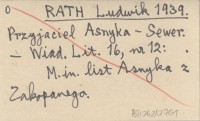 0 RATH Ludwik 1939.
Przyjaciel Asnyka - Sewer.
– Wiad. Lit. 16, nr 12:
M.in. list Asnyka z
Zakopanego.